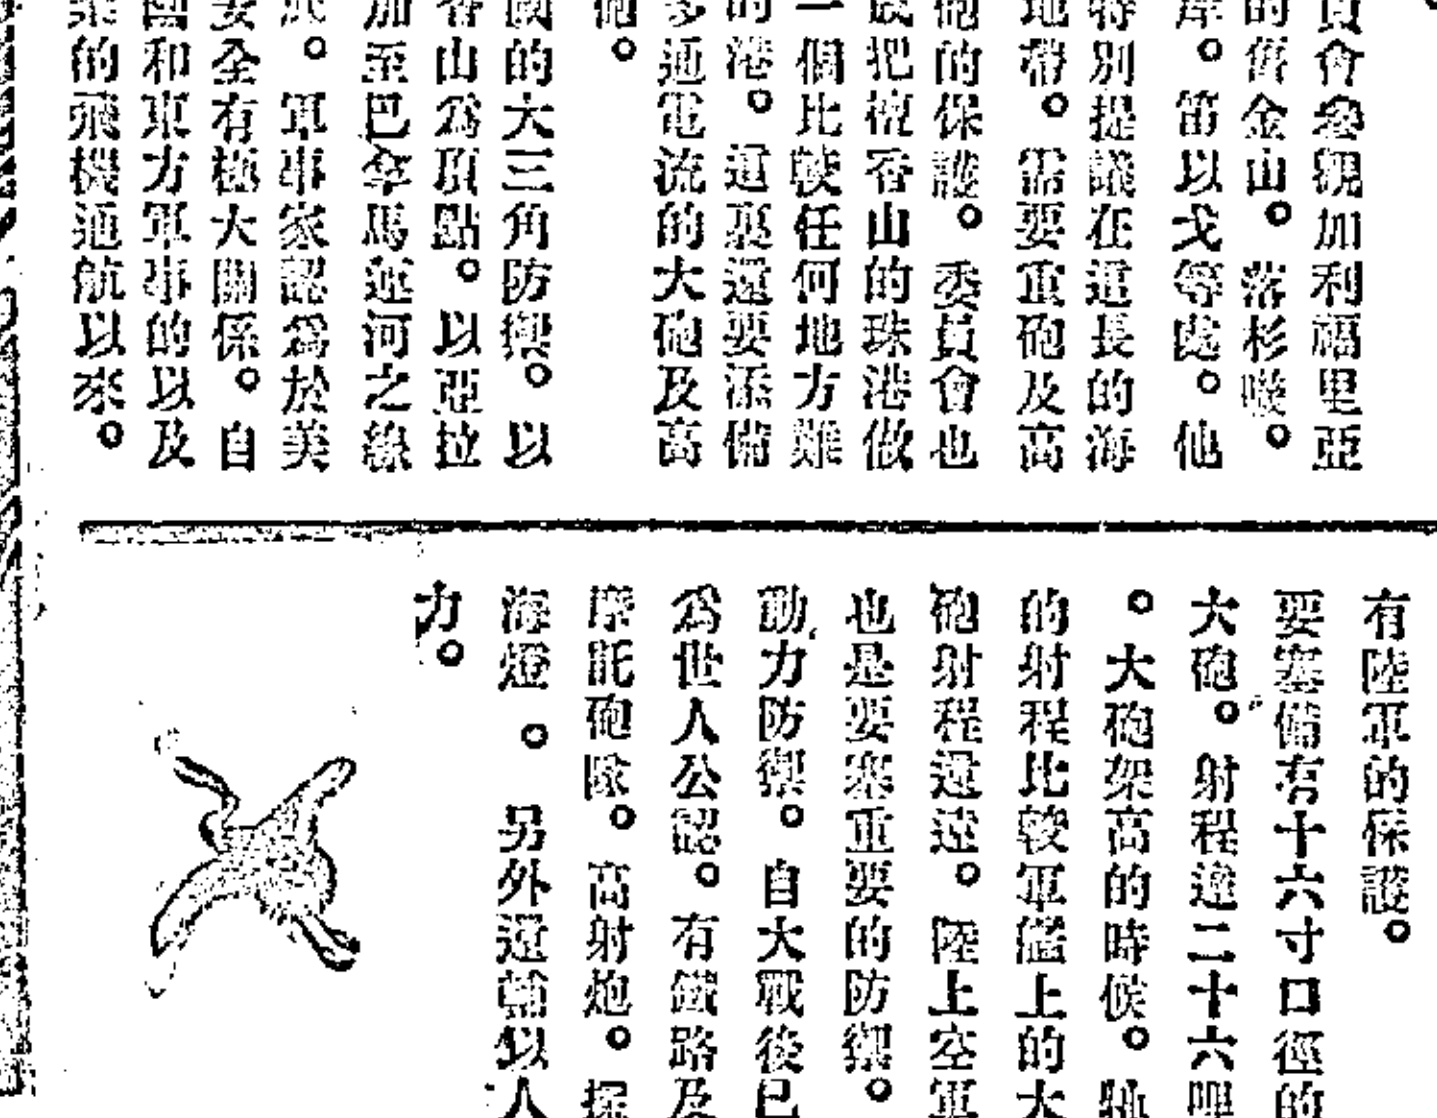 員會參觀加利福里亞
的舊金山。落杉磯。
岸。笛以戈等處。他
特別提議在這長的海
地帶。需要重砲及高
砲的保護。委員會也
成把檀香山的珠港做
一個比較任何地方難
的港。這裏還要添備
多通電流的大砲及高
砲。
國的大三角防禦。以
香山爲頂點。以亞拉
加至巴拿馬運河之線
。軍事家認爲於美
安全有極大關係。自
國和東方軍事的以及
業的飛機通航以來。
有陸軍的保護。
要塞備有十六寸口徑的
大砲。射程達二十六哩
。大砲架高的時候。牠
的射程比較軍艦上的大
砲射程還遠。陸上空軍
也是要塞重要的防禦。
動力防禦。自大戰後已
爲世人公認。有鐵路及
摩託砲隊。高射炮。探
海燈。另外運輸以人
力。